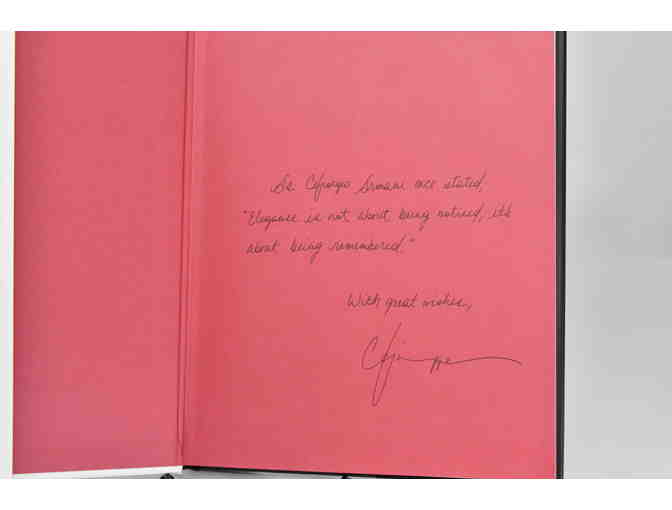 As Giorgio Armani once stated,
"Elegance is not about being noticed, it's
about being remembered."
With great wishes,